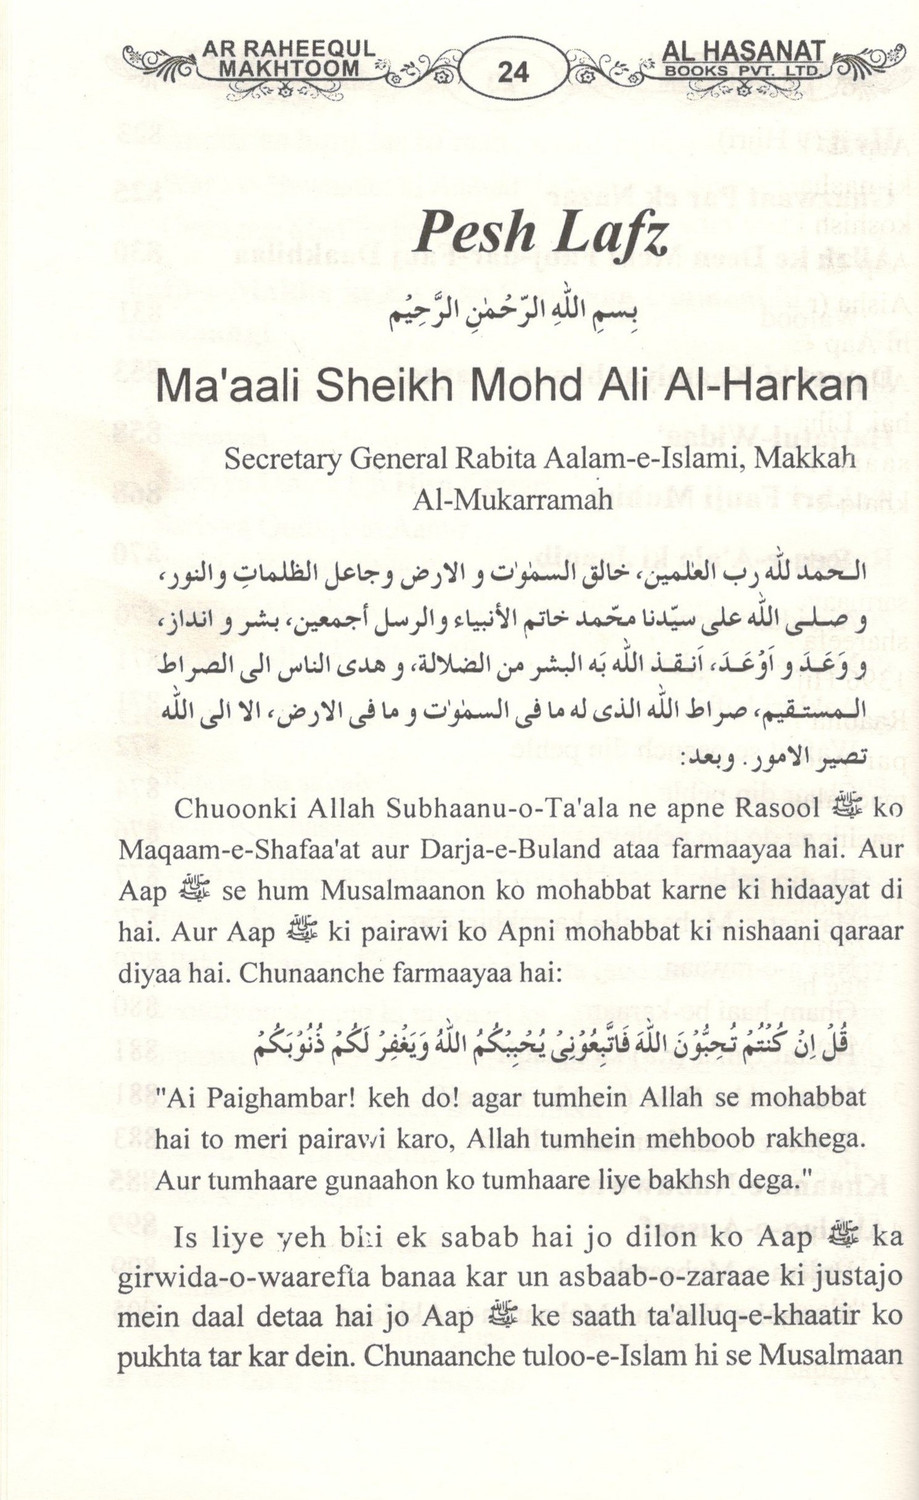 AR RAHEEQUL
MAKHTOOM
24
AL HASANAT
BOOKS PVT. LTD.
Pesh Lafz
بِسمِ اللهِ الرّحْمٰنِ الرَّحِيْم
Ma'aali Sheikh Mohd Ali Al-Harkan
Secretary General Rabita Aalam-e-Islami, Makkah
Al-Mukarramah
الحمد لله رب العٰلمين، خالق السمٰوٰت و الارض وجاعل الظلماتِ والنور،
و صلى الله على سيّدنا محّمد خاتم الأنبياء والرسل أجمعين، بشر و انذاز،
و وَعَدَ و اَوْعَدَ، اَنقذ الله بَه البشر من الضلالة، و هدى الناس الى الصراط
المستقيم، صراط الله الذى له ما فى السمٰوٰت و ما فى الارض، الا الى الله
تصير الامور. وبعد:
Chuoonki Allah Subhaanu-o-Ta'ala ne apne Rasool ﷺ ko
Maqaam-e-Shafaa'at aur Darja-e-Buland ataa farmaayaa hai. Aur
Aap ﷺ se hum Musalmaanon ko mohabbat karne ki hidaayat di
hai. Aur Aap ﷺ ki pairawi ko Apni mohabbat ki nishaani qaraar
diyaa hai. Chunaanche farmaayaa hai:
قُلْ اِنْ كُنْتُمْ تُحِبُّوْنَ اللهَ فَاتَّبِعُوْنِىْ يُحْبِبْكُمُ اللهُ وَيَغْفِرْ لَكُمْ ذُنُوْبَكُمْ
"Ai Paighambar! keh do! agar tumhein Allah se mohabbat
hai to meri pairawi karo, Allah tumhein mehboob rakhega.
Aur tumhaare gunaahon ko tumhaare liye bakhsh dega."
Is liye yeh bhi ek sabab hai jo dilon ko Aap ﷺ ka
girwida-o-waarefta banaa kar un asbaab-o-zaraae ki justajo
mein daal detaa hai jo Aap ﷺ ke saath ta'alluq-e-khaatir ko
pukhta tar kar dein. Chunaanche tuloo-e-Islam hi se Musalmaan